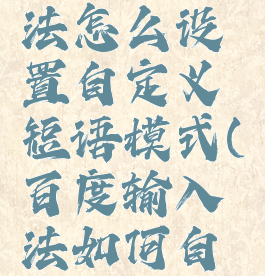 法怎么设
置自定义
短语模式(
百度输入
法如何自